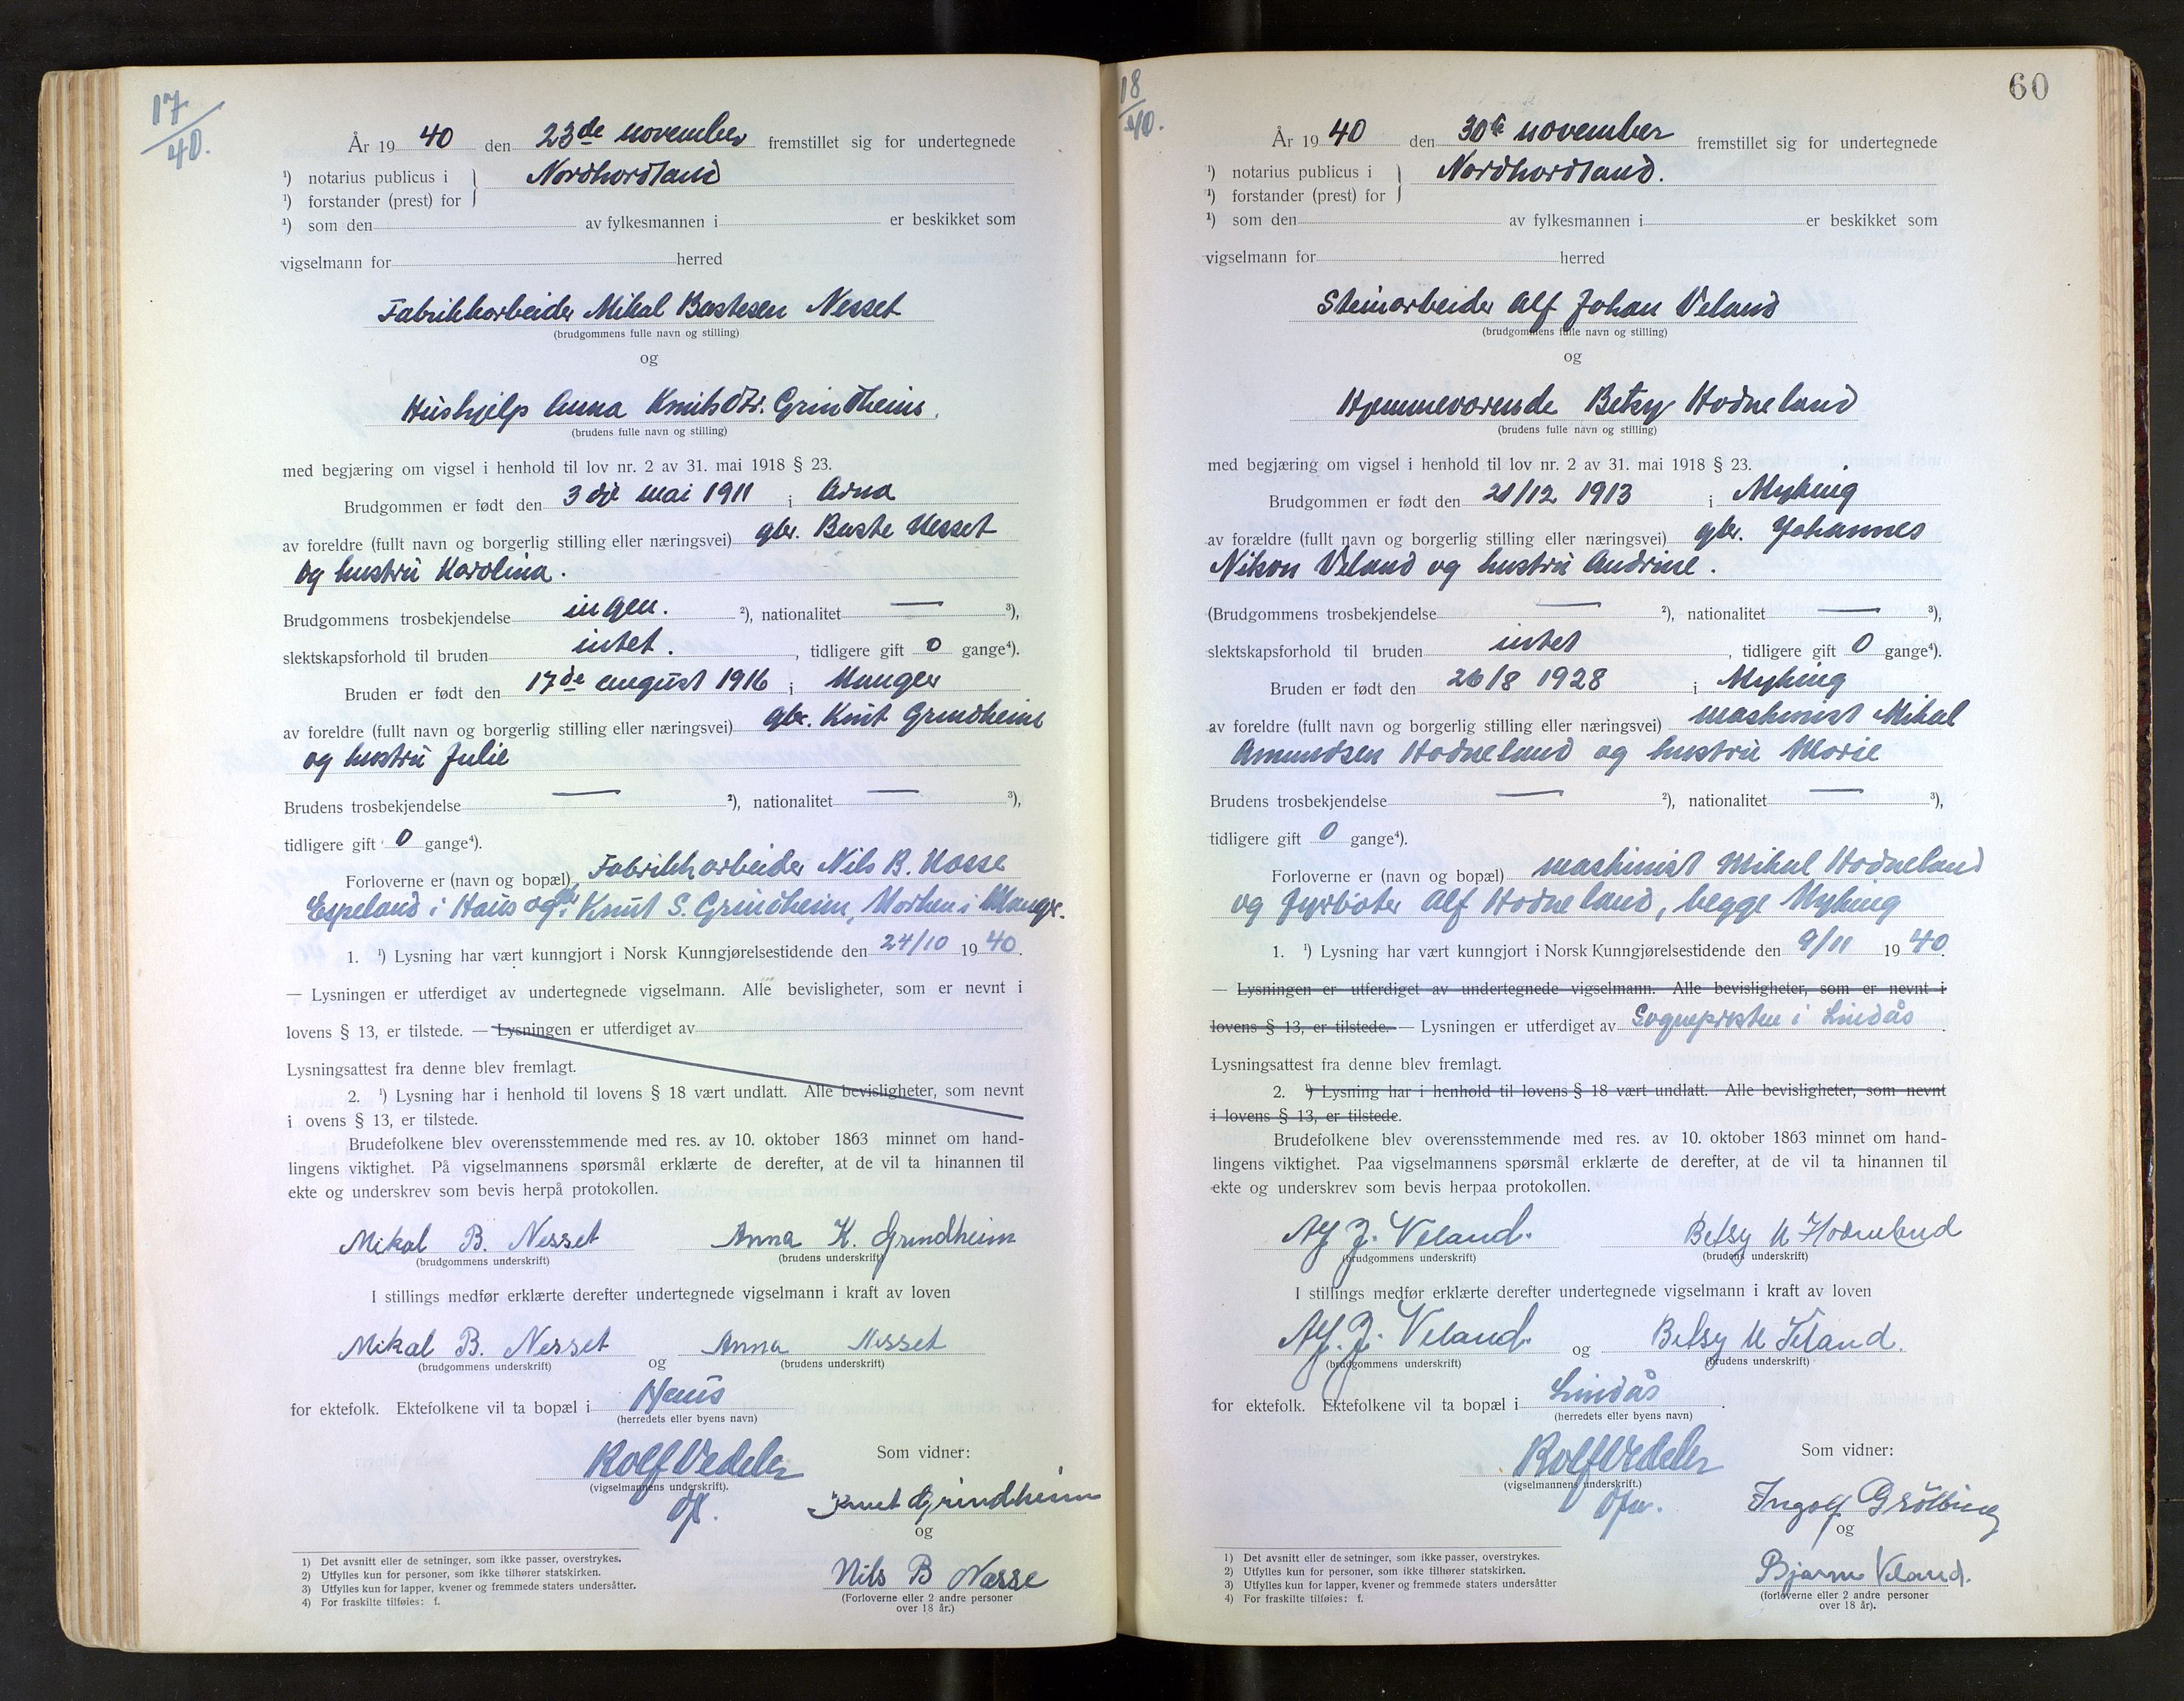 17
40.
År 19 40 den 23de november fremstillet sig for undertegnede
¹) notarius publicus i } Nordhordland
¹) forstander (prest) for
¹) som den av fylkesmannen i er beskikket som
vigselmann for herred
Fabrikkarbeider Mikal Bastesen Nesset
(brudgommens fulle navn og stilling)
og
Hushjelp Anna Knutsdtr. Grindheim.
(brudens fulle navn og stilling)
med begjæring om vigsel i henhold til lov nr. 2 av 31. mai 1918 § 23.
Brudgommen er født den 3dje mai 1911 i Arna
av foreldre (fullt navn og borgerlig stilling eller næringsvei) gbr. Baste Nesset
og hustru Karolina.
Brudgommens trosbekjendelse ingen. ²), nationalitet — ³),
slektskapsforhold til bruden intet. , tidligere gift 0 gange⁴).
Bruden er født den 17de august 1916 i Manger
av foreldre (fullt navn og borgerlig stilling eller næringsvei) gbr. Knut Grindheim
og hustru Julie
Brudens trosbekjendelse — ²), nationalitet — ³),
tidligere gift 0 gange⁴).
Forloverne er (navn og bopæl) Fabrikkarbeider Nils B. Nasse
Espeland i Haus og gbr. Knut S. Grindheim, Morken i Manger.
1. ¹) Lysning har vært kunngjort i Norsk Kunngjørelsestidende den 24/10 19 40.
— Lysningen er utferdiget av undertegnede vigselmann. Alle bevisligheter, som er nevnt i
lovens § 13, er tilstede. — Lysningen er utferdiget av
Lysningsattest fra denne blev fremlagt.
2. ¹) Lysning har i henhold til lovens § 18 vært undlatt. Alle bevisligheter, som nevnt
i ovens § 13, er tilstede.
Brudefolkene blev overensstemmende med res. av 10. oktober 1863 minnet om hand-
lingens viktighet. På vigselmannens spørsmål erklærte de derefter, at de vil ta hinannen til
ekte og underskrev som bevis herpå protokollen.
Mikal B. Nesset Anna K. Grindheim
(brudgommens underskrift) (brudens underskrift)
I stillings medfør erklærte derefter undertegnede vigselmann i kraft av loven
Mikal B. Nesset og Anna Nesset
(brudgommens underskrift) (brudens underskrift)
for ektefolk. Ektefolkene vil ta bopæl i Haus
(herredets eller byens navn)
Rolf Vedeler Som vidner:
(vigselmannens underskrift).
Knut Grindheim
og
Nils B Nasse
(Forloverne eller 2 andre personer
over 18 år.)
1) Det avsnitt eller de setninger, som ikke passer, overstrykes.
2) Utfylles kun for personer, som ikke tilhører statskirken.
3) Utfylles kun for lapper, kvener og fremmede staters undersåtter.
4) For fraskilte tilføies: f.
18
40.
60
År 19 40 den 30te november fremstillet sig for undertegnede
¹) notarius publicus i } Nordhordland.
¹) forstander (prest) for
¹) som den av fylkesmannen i er beskikket som
vigselmann for herred
Steinarbeider Alf Johan Veland
(brudgommens fulle navn og stilling)
og
Hjemmeværende Betsy Hodneland
(brudens fulle navn og stilling)
med begjæring om vigsel i henhold til lov nr. 2 av 31. mai 1918 § 23.
Brudgommen er født den 21/12 1913 i Myking
av forældre (fullt navn og borgerlig stilling eller næringsvei) gbr. Johannes
Nilson Veland og hustru Andrine.
(Brudgommens trosbekjendelse — ²), nationalitet — ³),
slektskapsforhold til bruden intet , tidligere gift 0 gange⁴).
Bruden er født den 26/8 1928 i Myking
av foreldre (fullt navn og borgerlig stilling eller næringsvei) maskinist Mikal
Amundsen Hodneland og hustru Marie
Brudens trosbekjendelse — ²), nationalitet — ³),
tidligere gift 0 gange⁴).
Forloverne er (navn og bopæl) maskinist Mikal Hodneland
og fyrbøter Alf Hodneland, begge Myking
1. ¹) Lysning har vært kunngjort i Norsk Kunngjørelsestidende den 9/11 19 40.
— Lysningen er utferdiget av undertegnede vigselmann. Alle bevisligheter, som er nevnt i
lovens § 13, er tilstede. — Lysningen er utferdiget av Sogneprosten i Lindås.
Lysningsattest fra denne blev fremlagt.
2. ¹) Lysning har i henhold til lovens § 18 vært undlatt. Alle bevisligheter, som nevnt
i lovens § 13, er tilstede.
Brudefolkene blev overensstemmende med res. av 10. oktober 1863 minnet om hand-
lingens viktighet. Paa vigselmannens spørsmål erklærte de derefter, at de vil ta hinannen til
ekte og underskrev som bevis herpaa protokollen.
Alf J. Veland. Betsy M Hodneland
(brudgommens underskrift) (brudens underskrift)
I stillings medfør erklærte derefter undertegnede vigselmann i kraft av loven
Alf. J. Veland. og Betsy M Veland.
(brudgommens underskrift) (brudens underskrift)
for ektefolk. Ektefolkene vil ta bopæl i Lindås.
(herredets eller byens navn)
Rolf Vedeler Som vidner:
(vigselmannens underskrift.)
Ingolf
og
Bjarne Veland.
(forloverne eller 2 andre personer
over 18 år).
1) Det avsnitt eller de setninger, som ikke passer, overstrykes.
2) Utfylles kun for personer, som ikke tilhører statskirken.
3) Utfylles kun for lapper, kvener og fremmede staters undersåtter
4) For fraskilte tilføies: f.